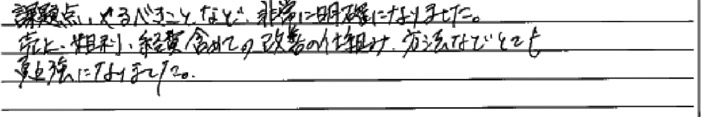 課題点、やるべきこと、など、非常に明確になりました。
売上、粗利、経費含めての改善の仕組み、方法などとても
勉強になりました。